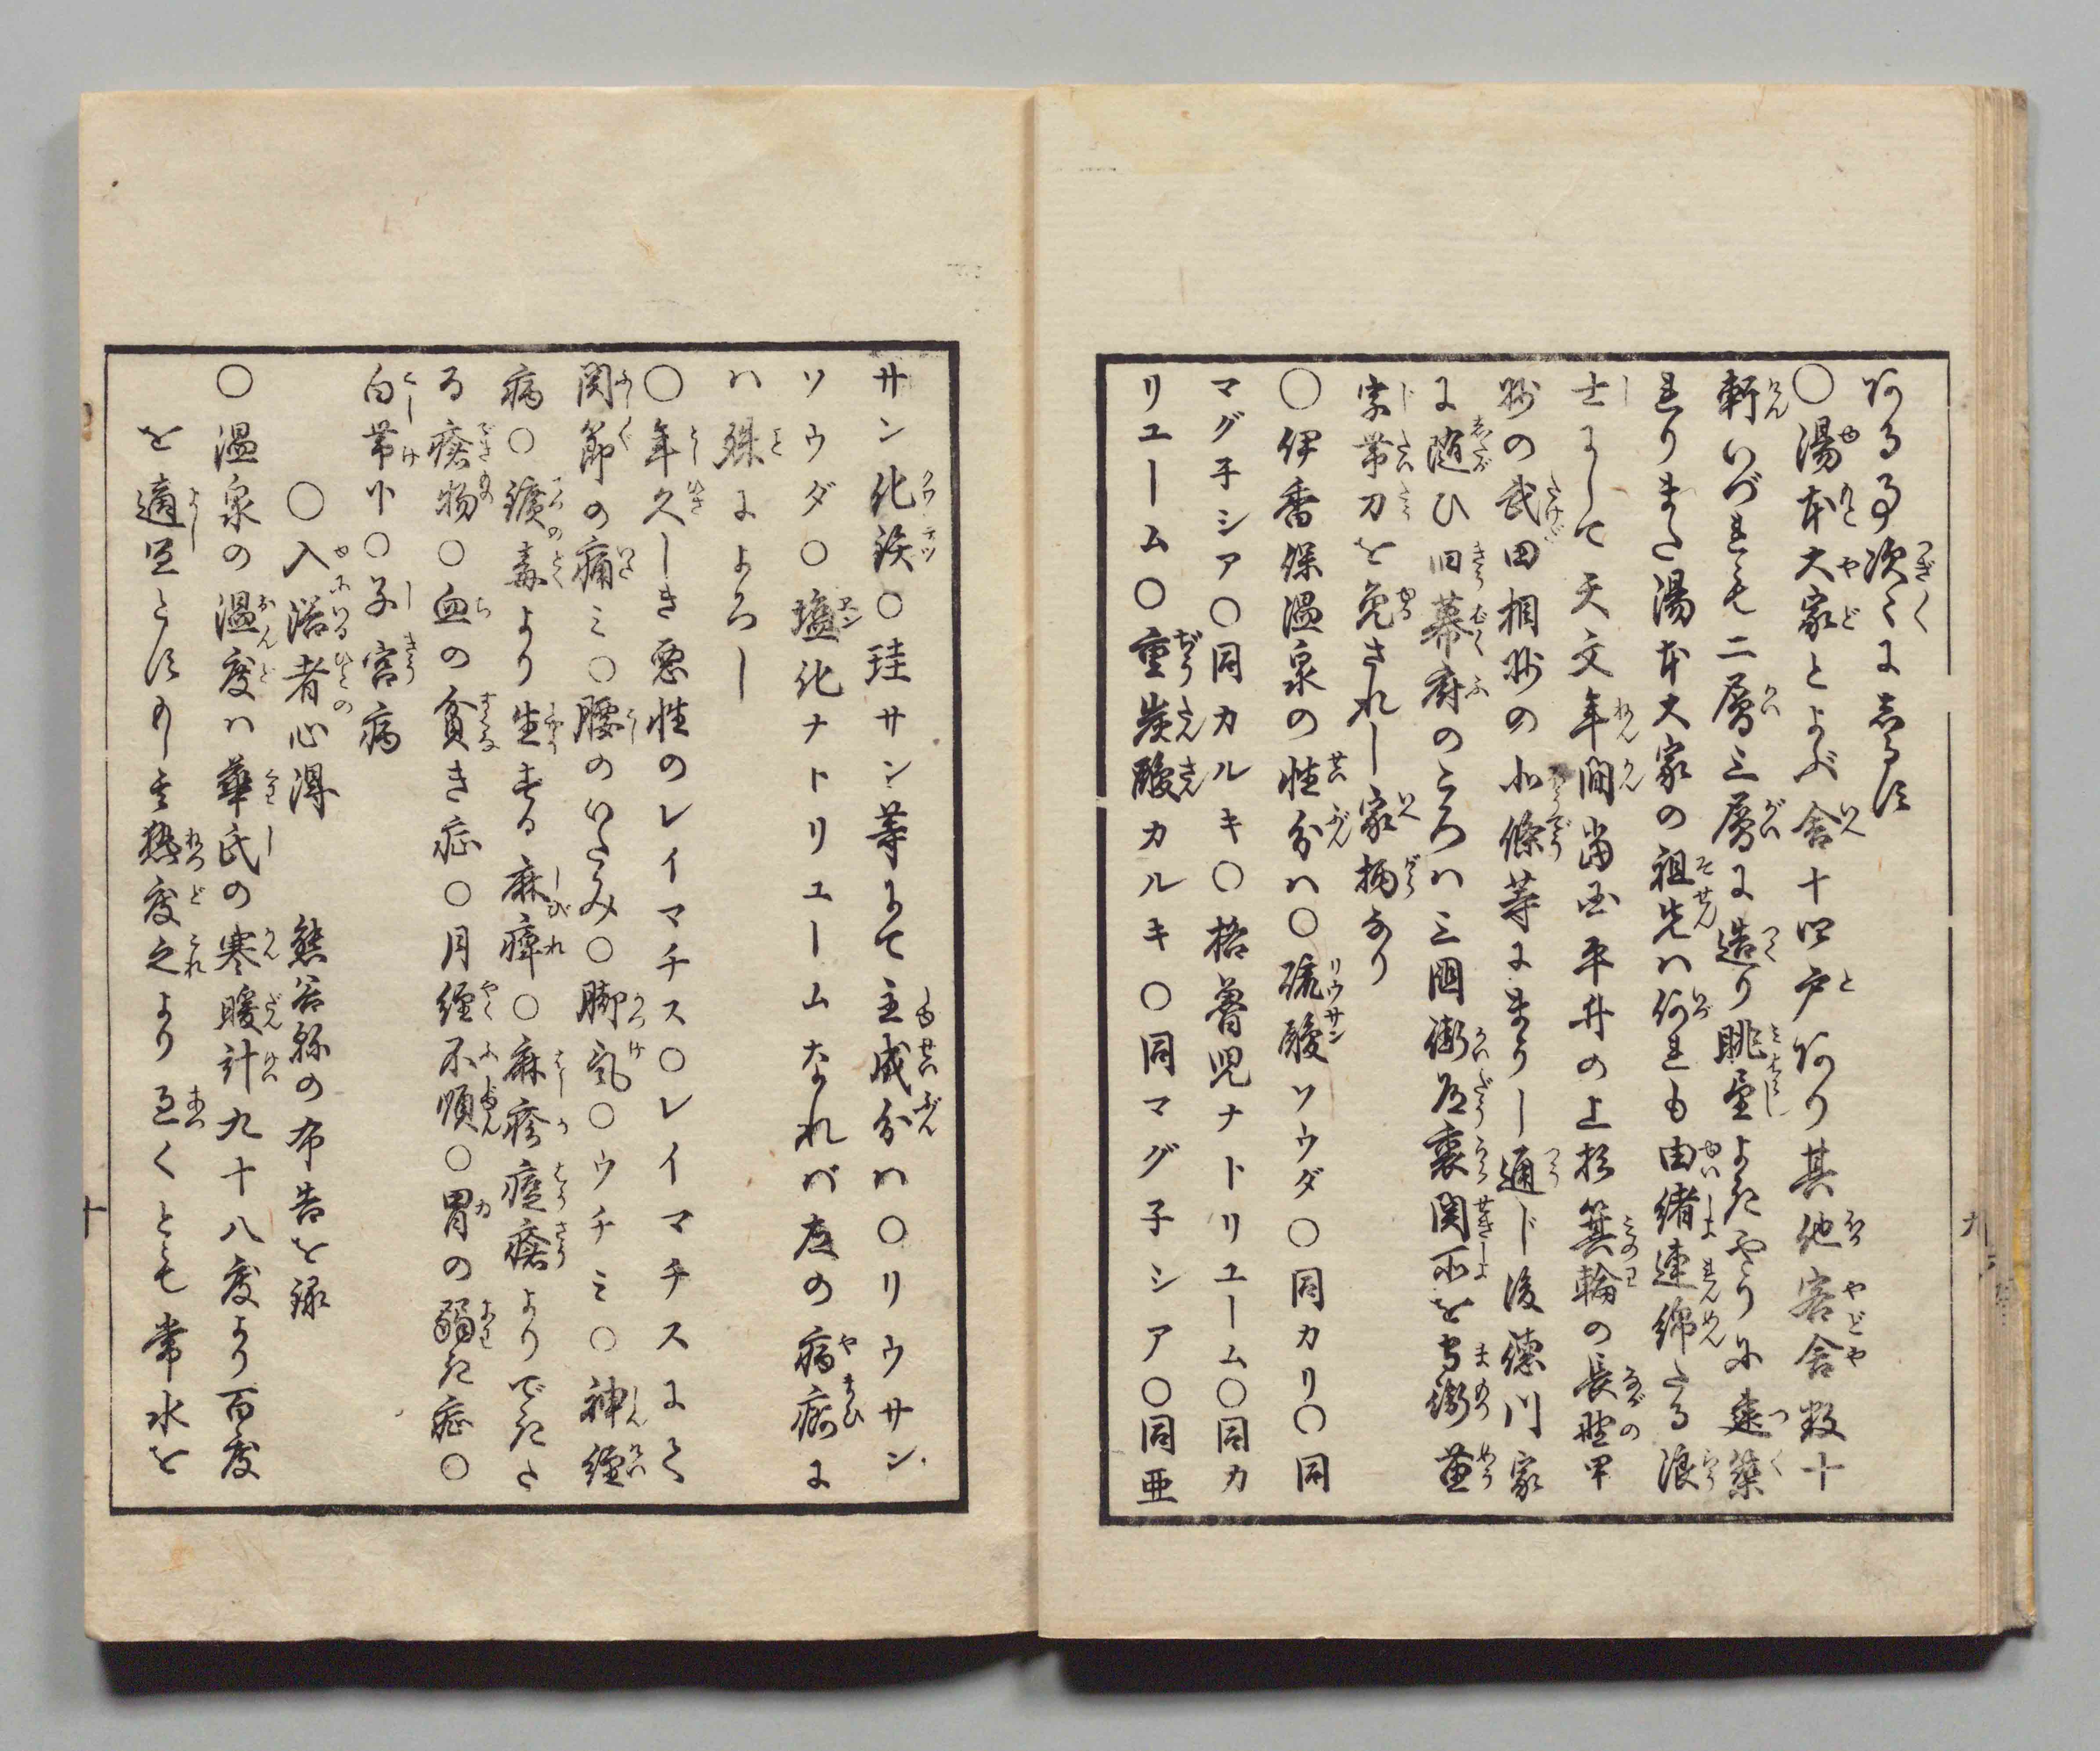 ある事次々にしるす
○湯本大家とよぶ舎十四戸あり其他客舎数十
軒いづれも二層三層に造り眺望よきやうに建築
せりまた湯本大家の祖先ハ何れも由緒連綿たる浪
士にして天文年間当国平井の上杉箕輪の長野甲
州の武田相州の北條等にまゐりし通じ後徳川家
に随ひ旧幕府のころハ三国街道裏関所を守衛苗
字帯刀を免されし家柄なり
○伊香保温泉の性分ハ○硫酸ソウダ○同カリ○同
マグ子シア○同カルキ○格魯児ナトリユーム○同カ
リユーム○重炭酸カルキ○同マグ子シア○同亜
九
サン化鉄○珪サン等にて主成分ハ○リウサン
ソウダ○塩化ナトリユームなれバ左の病痾に
ハ殊によろし
○年久しき悪性のレイマチス○レイマチスにて
関節の痛ミ○腰のいたみ○脚気○ウチミ○神経
病○黴毒より生ずる麻痺○麻疹痘瘡よりできた
る瘡物○血の貧き症○月経不順○胃の弱き症○
白帯下○子宮病
○入浴者心得 熊谷縣の布告を録
○温泉の温度ハ華氏の寒暖計九十八度より百度
を適宜とすもし其熱度之より亘くとも常水を
十